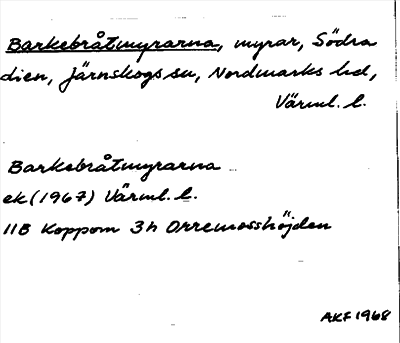 Barkebråtmyrarna, myrar, Södra
dien, Järnskogs sn, Nordmarks hd,
Värml. l.
Barkebråtmyrarna
ek (1967) Värml. l.
11B Koppom 3h Orremosshöjden
AKF 1968